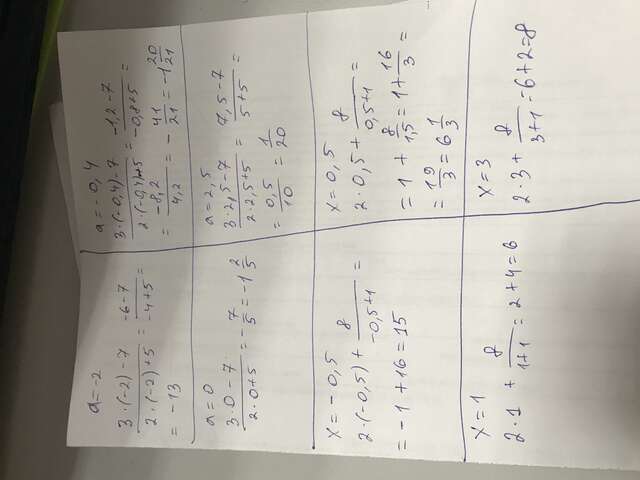 a=-2
3·(-2)-7/2·(-2)+5 = -6-7/-4+5 =
= -13
a=-0,4
3·(-0,4)-7/2·(-0,4)+5 = -1,2-7/-0,8+5 =
= -8,2/4,2 = -41/21 = -1 20/21
a=0
3·0-7/2·0+5 = -7/5 = -1 2/5
a=2,5
3·2,5-7/2·2,5+5 = 7,5-7/5+5 =
= 0,5/10 = 1/20
x=-0,5
2·(-0,5)+ 8/-0,5+1 =
= -1+16=15
x=0,5
2·0,5+ 8/0,5+1 =
= 1+ 8/1,5 = 1+ 16/3 =
= 19/3 = 6 1/3
x=1
2·1 + 8/1+1 = 2+4=6
x=3
2·3+ 8/3+1 = 6+2=8